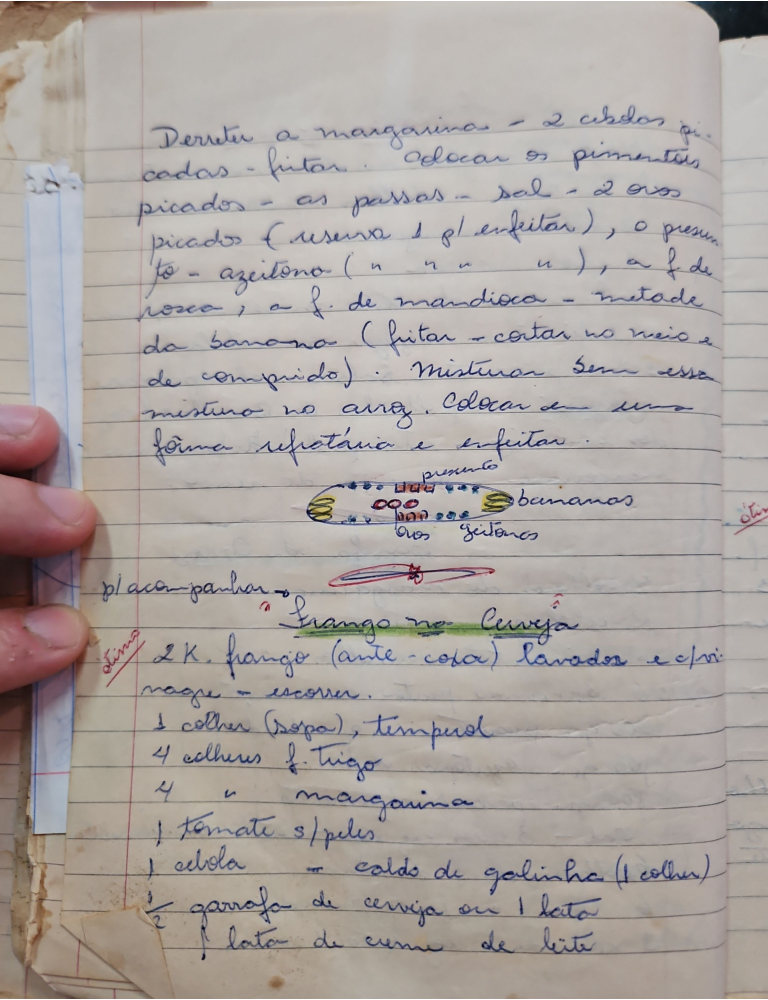 Derreter a margarina - 2 cebolas pi-
cadas - fritar. Colocar os pimentões
picados - as passas - sal - 2 ovos
picados (reserva 1 p/ enfeitar), o presun-
to - azeitona ( " " " " ), a f. de
rosca, a f. de mandioca - metade
da banana (fritar - cortar no meio e
de comprido). Misturar bem essa
mistura no arroz. Colocar em uma
fôrma refratária e enfeitar.
presunto
bananas
ovos azeitonas
p/ acompanhar
Frango na Cerveja
ótimo
2 K. frango (ante-coxa) lavados e c/ vi-
nagre - escorrer.
1 colher (sopa), temperol
4 colheres f. Trigo
4 " margarina
1 tomate s/ peles
1 cebola - caldo de galinha (1 colher)
1/2 garrafa de cerveja ou 1 lata
1 lata de creme de leite